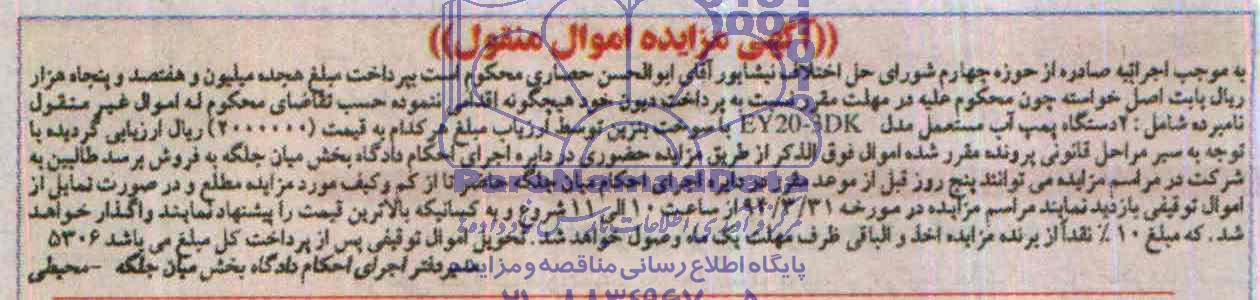 ((آگهی مزایده اموال منقول))
به موجب اجرائیه صادره از حوزه چهارم شورای حل اختلاف نیشابور آقای ابوالحسن حصاری محکوم است بپرداخت مبلغ هجده میلیون و هفتصد و پنجاه هزار
ریال بابت اصل خواسته چون محکوم علیه در مهلت مقرر نسبت به پرداخت دیون خود هیچگونه اقدامی ننموده حسب تقاضای محکوم له اموال غیر منقول
نامبرده شامل : ۲دستگاه پمپ آب مستعمل مدل EY20-3DK با سوخت بنزین توسط ارزیاب مبلغ هرکدام به قیمت (۲۰۰۰۰۰۰) ریال ارزیابی گردیده با
توجه به سیر مراحل قانونی پرونده مقرر شده اموال فوق الذکر از طریق مزایده حضوری در دایره اجرای احکام دادگاه بخش میان جلگه به فروش برسد طالبین به
شرکت در مراسم مزایده می توانند پنج روز قبل از موعد مقرر در دایره اجرای احکام میان جلگه حاضر تا از کم وکیف مورد مزایده مطلع و در صورت تمایل از
اموال توقیفی بازدید نمایند مراسم مزایده در مورخه ۹۴/۳/۳۱ از ساعت ۱۰ الی ۱۱ شروع و کسانیکه بالاترین قیمت را پیشنهاد نمایند واگذار خواهد
شد . که مبلغ ۱۰٪ نقداً از برنده مزایده اخذ و الباقی ظرف مهلت یک ماه وصول خواهد شد . تحویل اموال توقیفی پس از پرداخت کل مبلغ می باشد ۵۳۰۶
مدیر دفتر اجرای احکام دادگاه بخش میان جلگه - محیطی
Pars Namad Data
پایگاه اطلاع رسانی مناقصه و مزایده